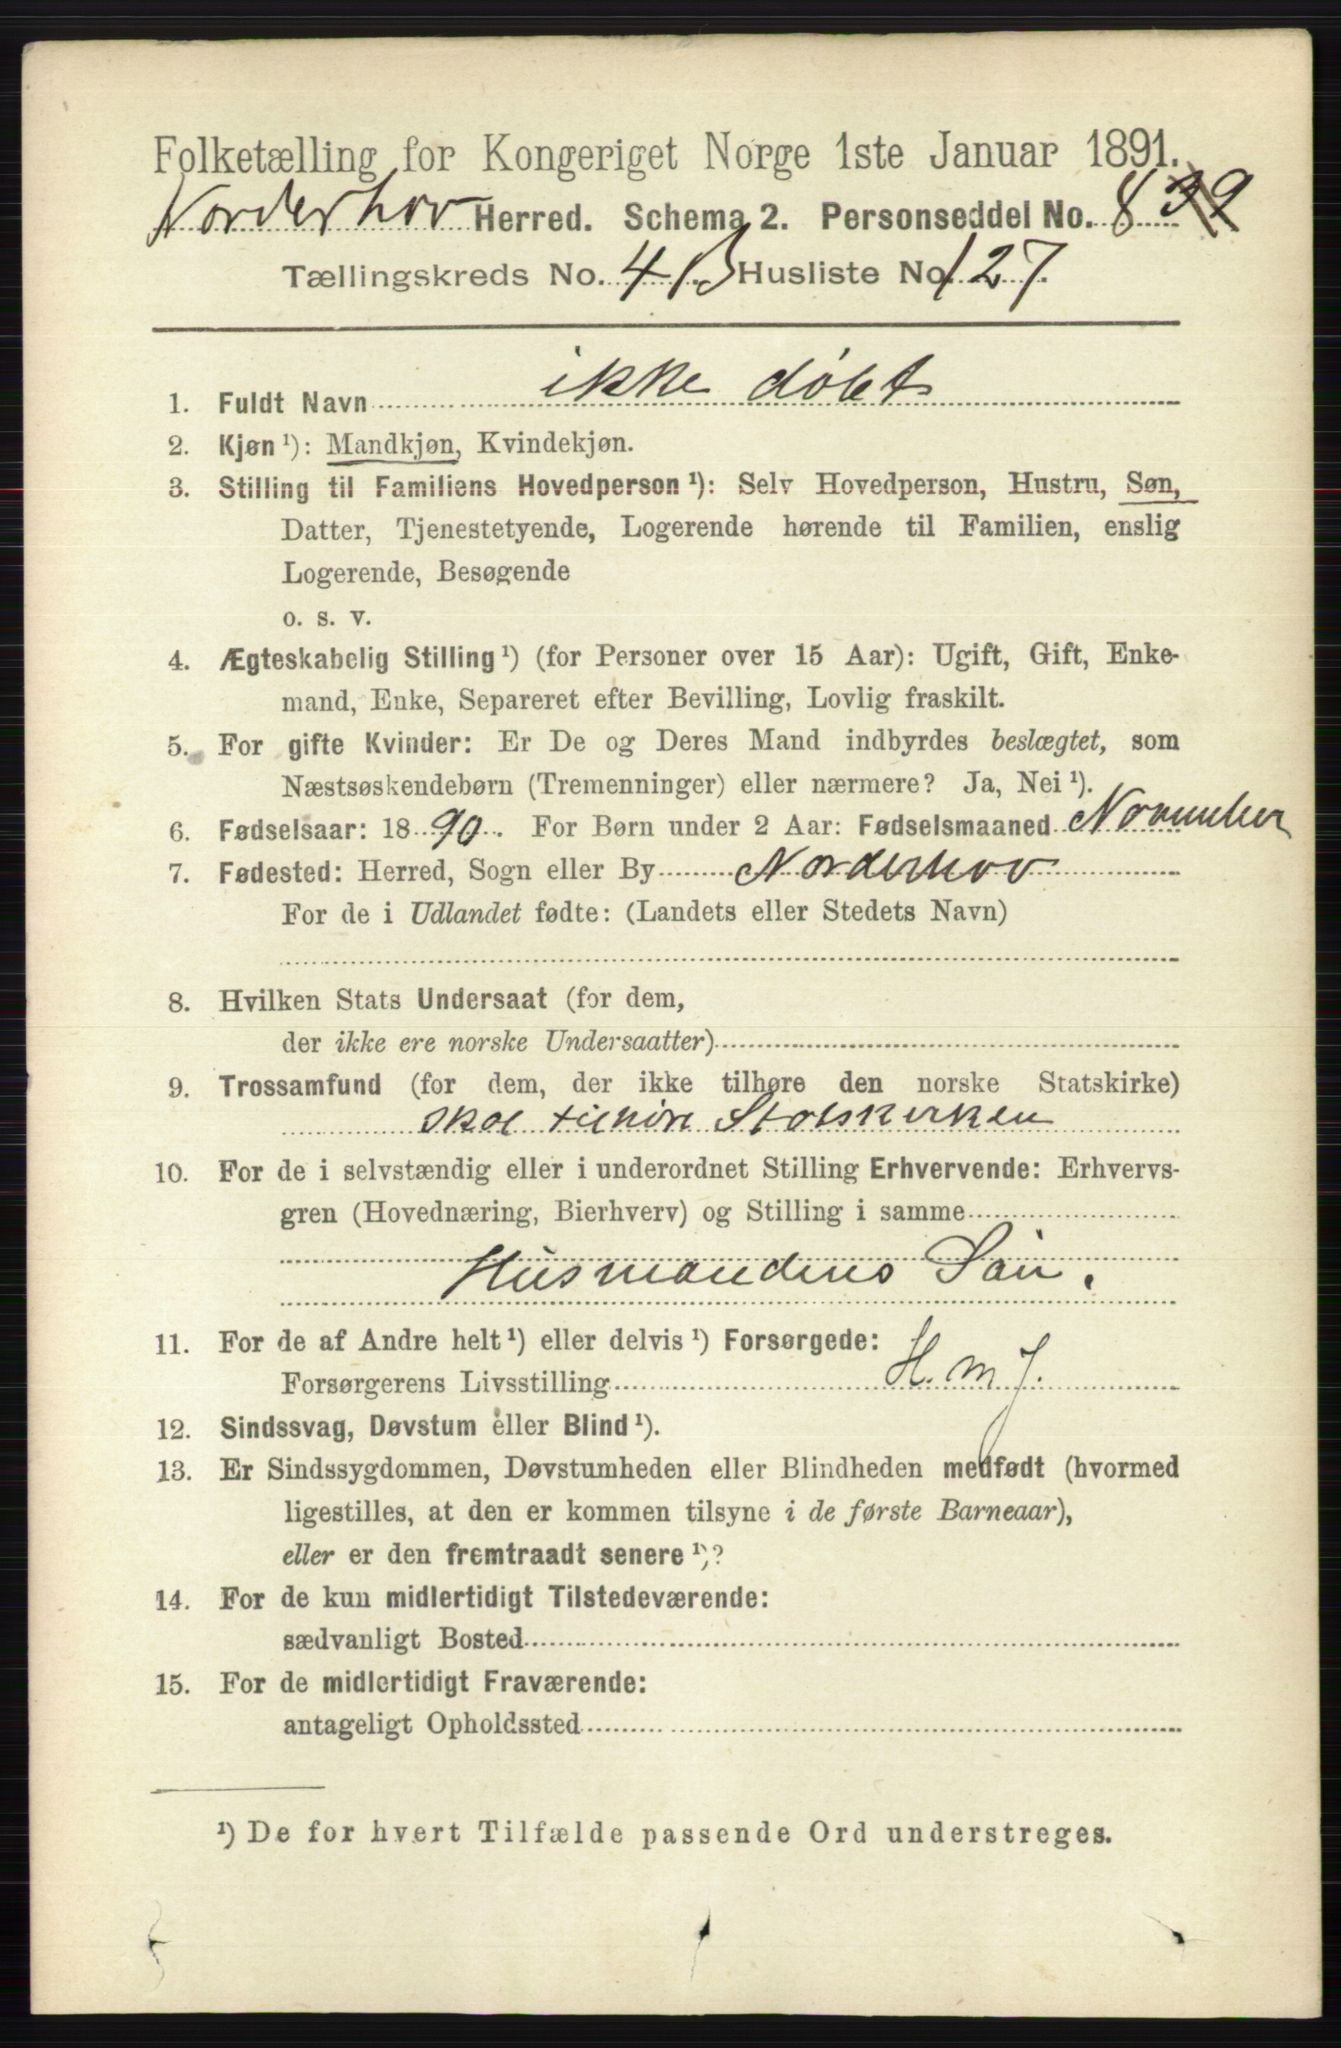 Folketælling for Kongeriget Norge 1ste Januar 1891.
Norderhov Herred. Schema 2. Personseddel No. 8
Tællingskreds No. 4 B Husliste No. 127.
1. Fuldt Navn ikke døbt
2. Kjøn ¹): Mandkjøn, Kvindekjøn.
3. Stilling til Familiens Hovedperson ¹): Selv Hovedperson, Hustru, Søn,
Datter, Tjenestetyende, Logerende hørende til Familien, enslig
Logerende, Besøgende
o. s. v.
4. Ægteskabelig Stilling ¹) (for Personer over 15 Aar): Ugift, Gift, Enke-
mand, Enke, Separeret efter Bevilling, Lovlig fraskilt.
5. For gifte Kvinder: Er De og Deres Mand indbyrdes beslægtet, som
Næstsøskendebørn (Tremenninger) eller nærmere? Ja, Nei ¹).
6. Fødselsaar: 1890. For Børn under 2 Aar: Fødselsmaaned November
7. Fødested: Herred, Sogn eller By Norderhov
For de i Udlandet fødte: (Landets eller Stedets Navn)
8. Hvilken Stats Undersaat (for dem,
der ikke ere norske Undersaatter)
9. Trossamfund (for dem, der ikke tilhøre den norske Statskirke)
skal tilhøre Statskirken
10. For de i selvstændig eller i underordnet Stilling Erhvervende: Erhvervs-
gren (Hovednæring, Bierhverv) og Stilling i samme
Husmandens Søn.
11. For de af Andre helt ¹) eller delvis ¹) Forsørgede:
Forsørgerens Livsstilling H. m J.
12. Sindssvag, Døvstum eller Blind ¹).
13. Er Sindssygdommen, Døvstumheden eller Blindheden medfødt (hvormed
ligestilles, at den er kommen tilsyne i de første Barneaar),
eller er den fremtraadt senere ¹)?
14. For de kun midlertidigt Tilstedeværende:
sædvanligt Bosted
15. For de midlertidigt Fraværende:
antageligt Opholdssted
¹) De for hvert Tilfælde passende Ord understreges.